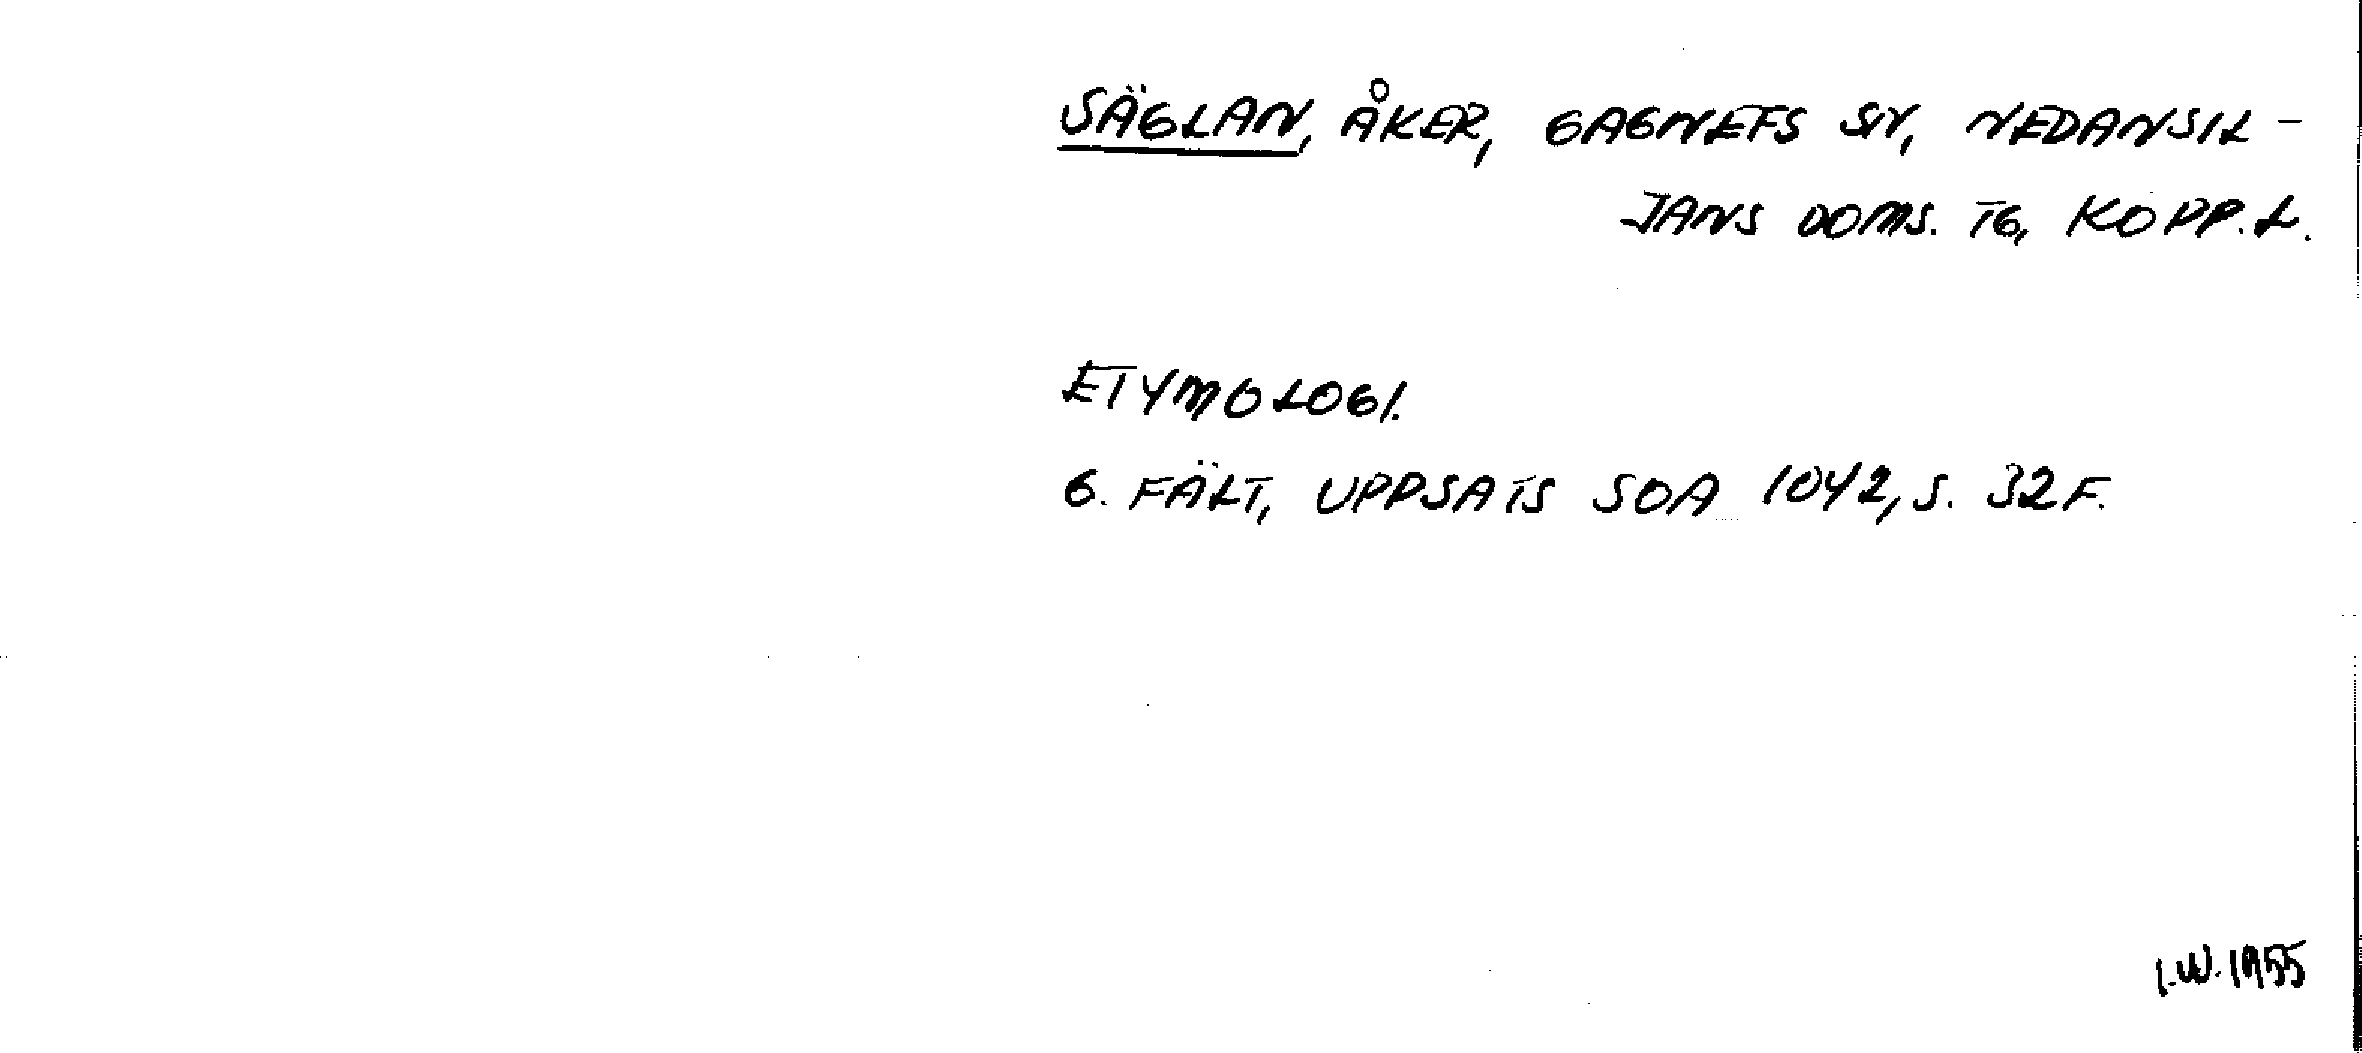 SÄGLAN, ÅKER, GAGNEFS SN, NEDANSIL-
JANS DOMS. TG, KOPP. L.
ETYMOLOGI.
G. FÄLT, UPPSATS SOA 1042, S. 32F.
I.W. 1955